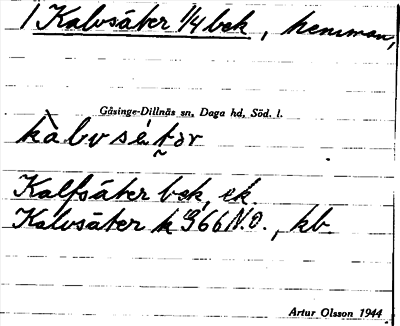 1 Kalvsäter 1/4 bek, hemman,
Gåsinge-Dillnäs sn, Daga hd, Söd. l.
kàlvsétər
Kalfsäter bek, ek.
Kalvsäter k G66 N.O., kb
Artur Olsson 1944